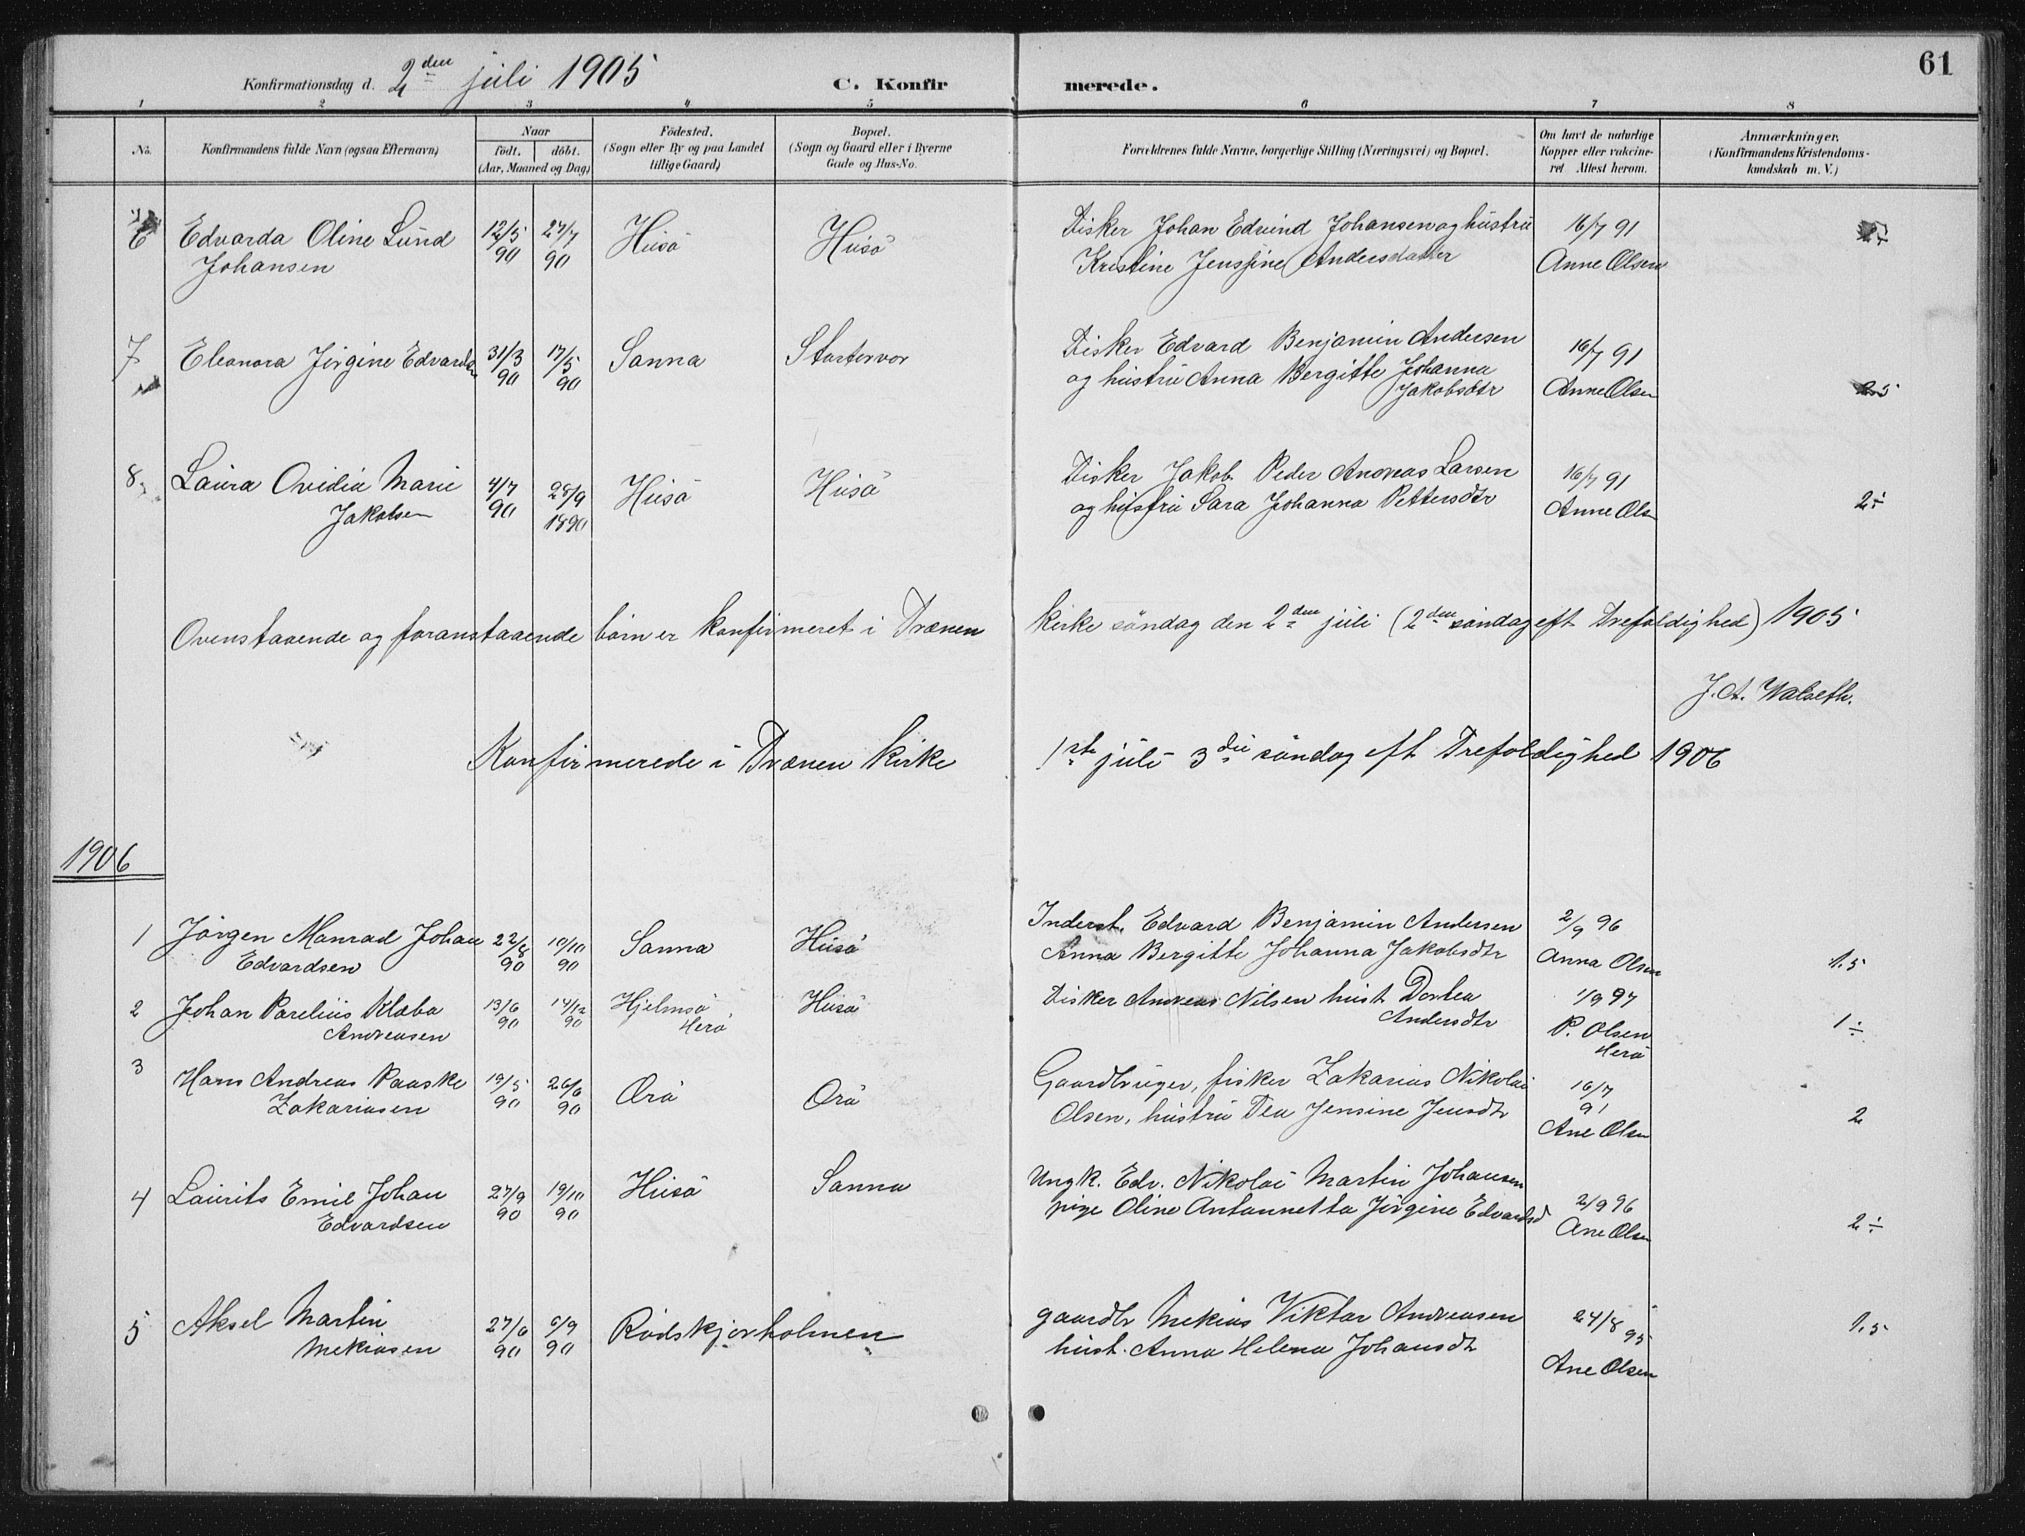 61
Konfirmationsdag d. 2den juli 1905 C. Konfirmerede.
1 2 3 4 5 6 7 8
No. Konfirmandens fulde Navn (ogsaa Efternavn) Naar født. døbt. (Aar, Maaned og Dag) Fødested. (Sogn eller By og paa Landet tillige Gaard) Bopæl. (Sogn og Gaard eller i Byerne Gade og Hus-No. Forældrenes fulde Navne, borgerlige Stilling (Næringsvei) og Bopæl. Om havt de naturlige Kopper eller vakcineret Attest herom. Anmærkninger. (Konfirmandens Kristendomskundskab m. V.)
6 Edvarda Oline Lund 12/5 27/7 Husö Husö Fisker Johan Edvind Johansen og hustru 16/7 91
Johansen 90 90 Kristine Jensine Andersdatter Anne Olsen
7 Eleonora Jörgine Edvardsen 31/3 17/5 Sanna Fisker Edvard Benjamin Andersen 16/7 91
90 90 og hustru Anna Bergitte Johanna Jakobsdtr Anne Olsen 2.5
8 Laura Ovidia Marie 4/7 28/9 Husö Husö Fisker Jakob Peder Andreas Larsen 16/7 91
Jakobsen 90 1890 og hustru Sara Johanna Pettersdtr Anne Olsen 2÷
Ovenstaaende og foranstaaende börn er konfirmeret i Trænen kirke söndag den 2den juli (2den söndag eft Trefoldighed) 1905
J. A. Walseth.
Konfirmerede i Trænen kirke 1ste juli 3die söndag eft Trefoldighed 1906
1906
1 Jörgen Manrad Johan 22/8 19/10 Sanna Husö Inderst. Edvard Benjamin Andersen 2/9 96
Edvardsen 90 90 Anna Bergitte Johanna Jakobsdtr Anna Olsen 1.5
2 Johan Parelius Klæbo 13/6 14/12 Hjelmsö Husö Fisker Andreas Nilsen hust Dortea 1/9 97
Andreasen 90 90 Herö Andersdtr P. Olsen Herö 1÷
3 Hans Andreas Paaske 19/5 26/6 Örö Örö Gaardbruger, fisker Zakarias Nikolai 16/7 91
Zakariasen 90 90 Olsen, hustru Tea Jensine Jensdtr Ane Olsen 2
4 Laurits Emil Johan 27/9 19/10 Husö Sanna Ungk. Edv. Nikolai Martin Johansen 2/9 96
Edvardsen 90 90 pige Oline Antonnetta Jörgine Edvardsd Ane Olsen 2÷
5 Aksel Martin 27/6 6/9 Rödskjærholmen gaardbr Mekias Viktor Andreasen 24/8 95
Mekiasen 90 90 hust. Anna Helena Johansdtr Ane Olsen 1.5